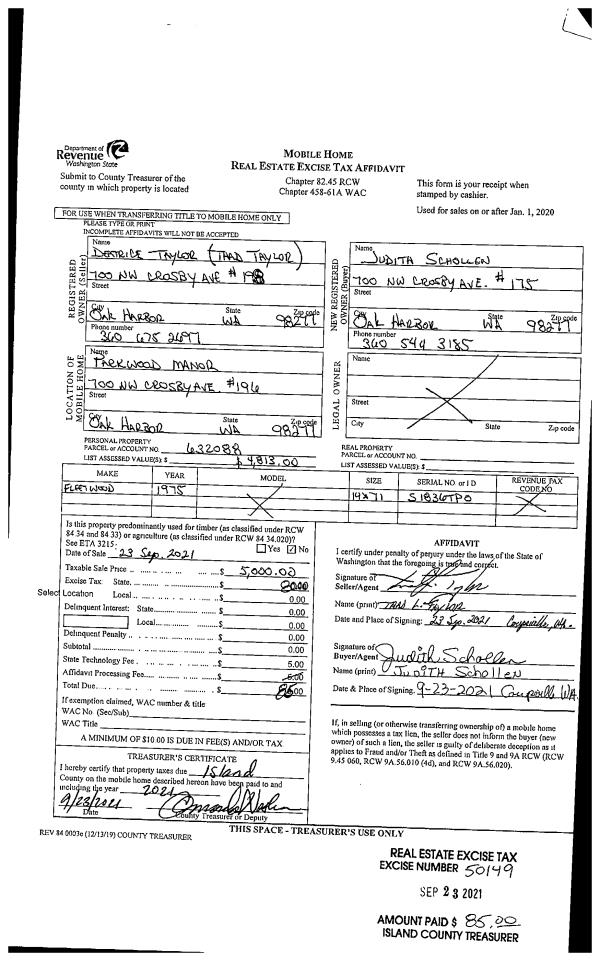 Department of
Revenue
Washington State
Submit to County Treasurer of the
county in which property is located
MOBILE HOME
REAL ESTATE EXCISE TAX AFFIDAVIT
Chapter 82.45 RCW
Chapter 458-61A WAC
This form is your receipt when
stamped by cashier.
Used for sales on or after Jan. 1, 2020
FOR USE WHEN TRANSFERRING TITLE TO MOBILE HOME ONLY
PLEASE TYPE OR PRINT
INCOMPLETE AFFIDAVITS WILL NOT BE ACCEPTED
REGISTERED
OWNER (Seller)
Name
TAYLOR (THAD TAYLOR)
700 NW CROSBY AVE #
Street
City State Zip code
OAK HARBOR WA 98277
Phone number
360 675 2697
NEW REGISTERED
OWNER (Buyer)
Name
JUDITH SCHOLLEN
700 NW CROSBY AVE. # 175
Street
City State Zip code
OAK HARBOR WA 98277
Phone number
360 544 3185
LOCATION OF
MOBILE HOME
Name
PARKWOOD MANOR
700 NW CROSBY AVE. #196
Street
City State Zip code
OAK HARBOR WA 98277
LEGAL OWNER
Name
Street
City State Zip code
PERSONAL PROPERTY
PARCEL or ACCOUNT NO. 632088
LIST ASSESSED VALUE(S): $ 4,813.00
REAL PROPERTY
PARCEL or ACCOUNT NO.
LIST ASSESSED VALUE(S): $
MAKE YEAR MODEL SIZE SERIAL NO. or I D REVENUE TAX CODE NO
FLEETWOOD 1975 14x71 S1836TPO
Is this property predominantly used for timber (as classified under RCW
84 34 and 84 33) or agriculture (as classified under RCW 84 34.020)?
See ETA 3215. Yes ☑ No
Date of Sale 23 Sep. 2021
Taxable Sale Price $ 5,000.00
Excise Tax: State $
Select Location Local $ 0.00
Delinquent Interest: State $ 0.00
Local $ 0.00
Delinquent Penalty $ 0.00
Subtotal $ 0.00
State Technology Fee $ 5.00
Affidavit Processing Fee $ 5.00
Total Due $
If exemption claimed, WAC number & title
WAC No. (Sec/Sub)
WAC Title
A MINIMUM OF $10.00 IS DUE IN FEE(S) AND/OR TAX
TREASURER'S CERTIFICATE
I hereby certify that property taxes due Island
County on the mobile home described hereon have been paid to and
including the year 2021
9/23/2021
Date County Treasurer or Deputy
AFFIDAVIT
I certify under penalty of perjury under the laws of the State of
Washington that the foregoing is true and correct.
Signature of
Seller/Agent
Name (print) THAD L. TAYLOR
Date and Place of Signing: 23 Sep. 2021 Coupeville, WA.
Signature of
Buyer/Agent Judith Schollen
Name (print) JUDITH SCHOLLEN
Date & Place of Signing. 9-23-2021 Coupeville WA.
If, in selling (or otherwise transferring ownership of) a mobile home
which possesses a tax lien, the seller does not inform the buyer (new
owner) of such a lien, the seller is guilty of deliberate deception as it
applies to Fraud and/or Theft as defined in Title 9 and 9A RCW (RCW
9.45 060, RCW 9A.56.010 (4d), and RCW 9A.56.020).
REV 84 0003e (12/13/19) COUNTY TREASURER
THIS SPACE - TREASURER'S USE ONLY
REAL ESTATE EXCISE TAX
EXCISE NUMBER 50149
SEP 23 2021
AMOUNT PAID $ 85.00
ISLAND COUNTY TREASURER